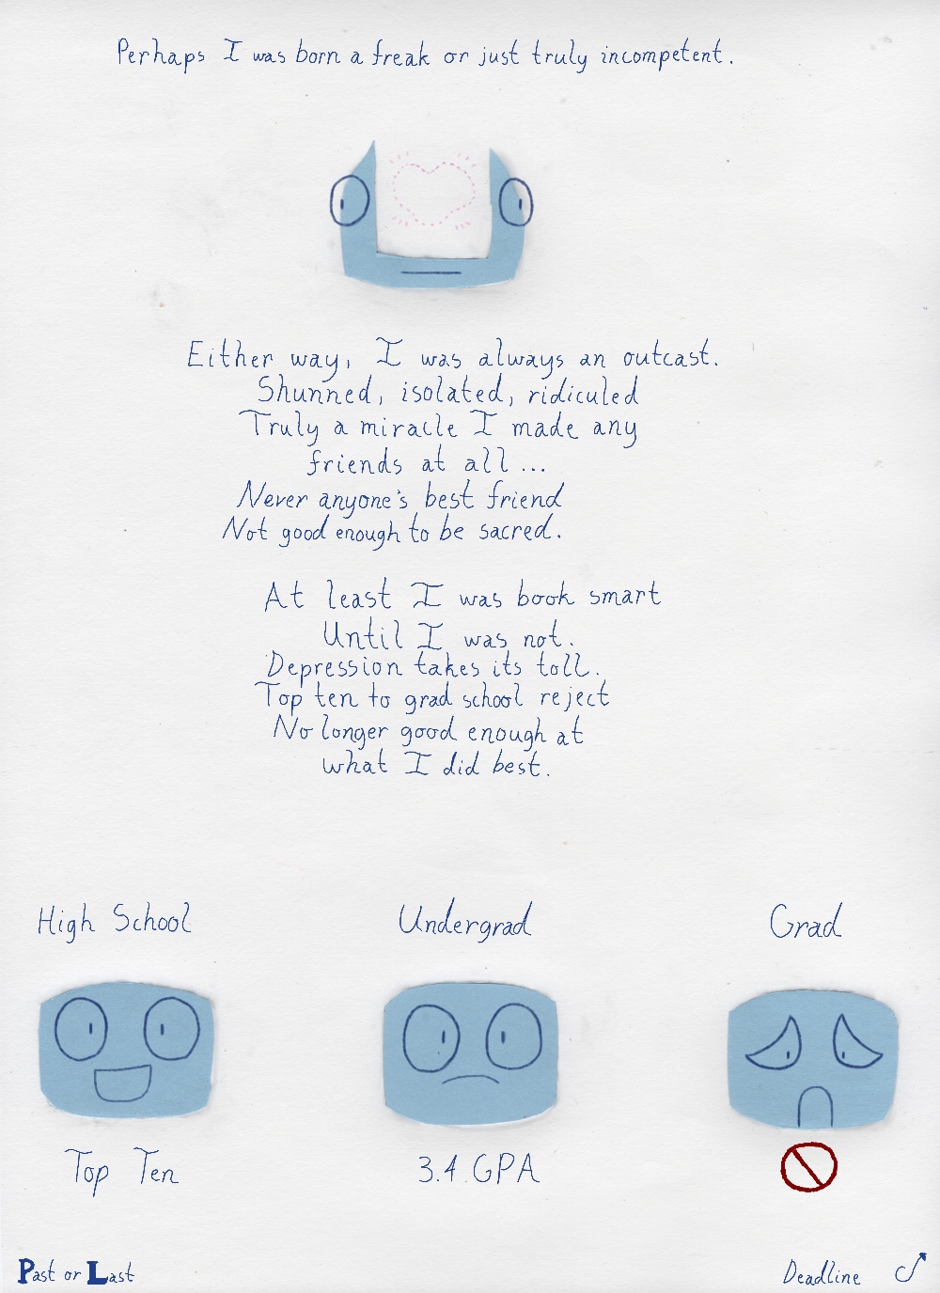 Perhaps I was born a freak or just truly incompetent.
Either way, I was always an outcast.
Shunned, isolated, ridiculed
Truly a miracle I made any
friends at all...
Never anyone's best friend
Not good enough to be sacred.
At least I was book smart
Until I was not.
Depression takes its toll.
Top ten to grad school reject
No longer good enough at
what I did best.
High School
Undergrad
Grad
Top Ten
3.4 GPA
Past or Last
Deadline